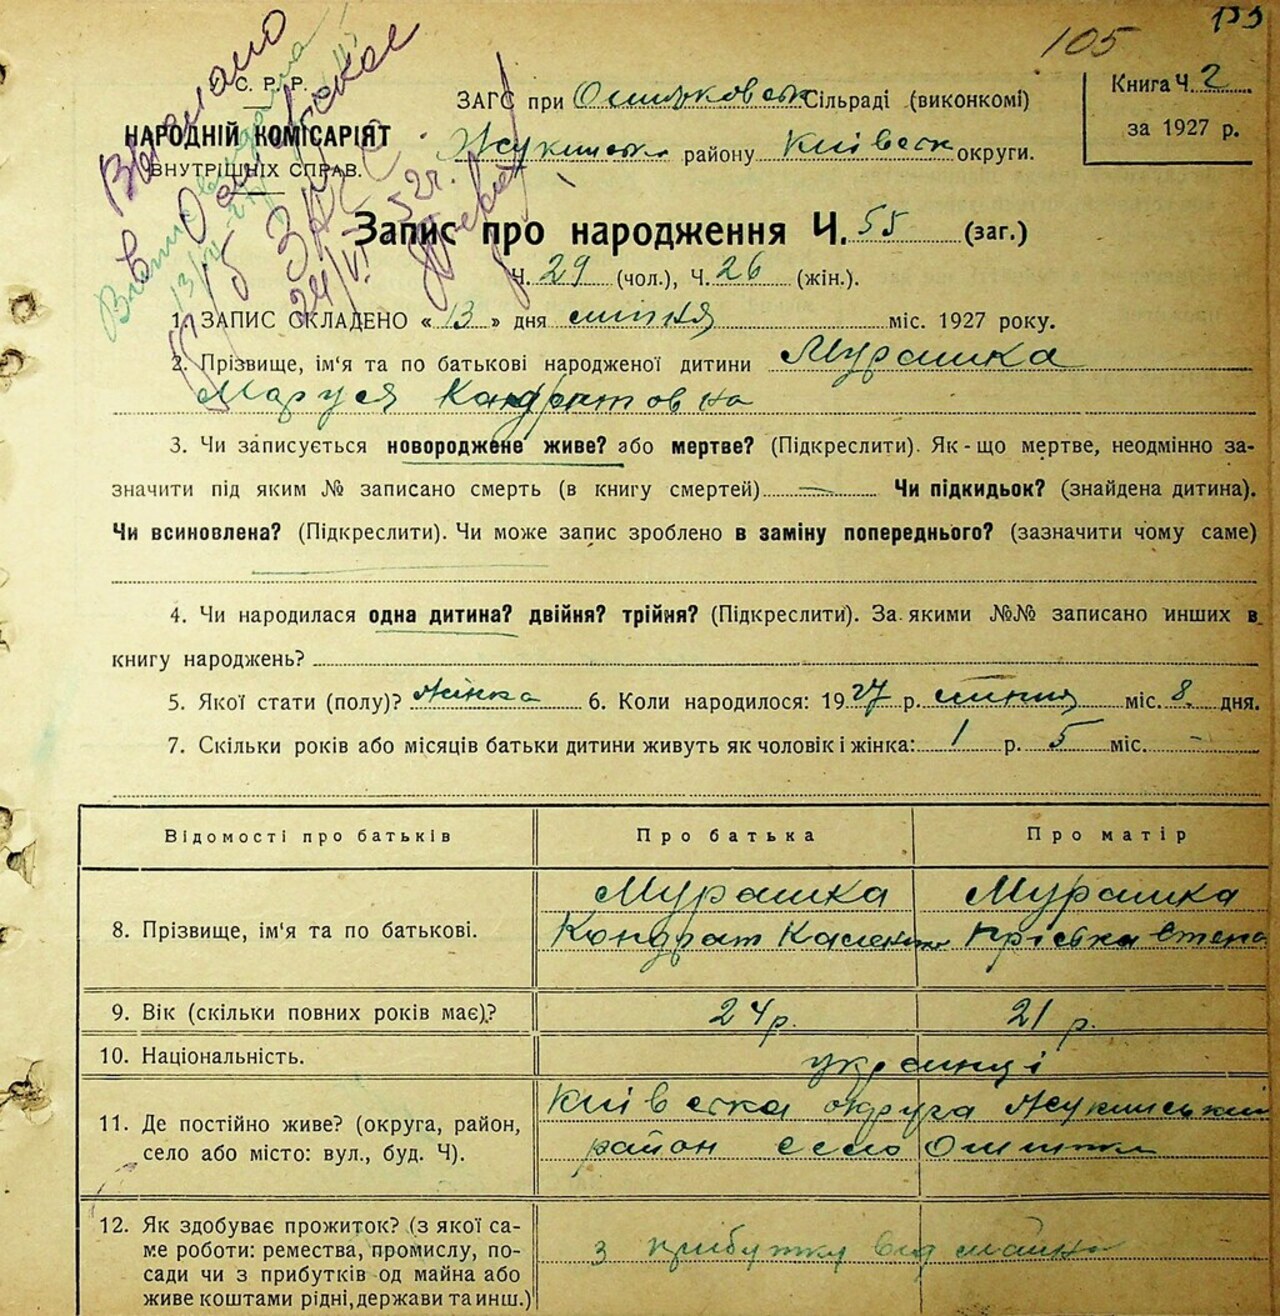 105
С. Р. Р.
НАРОДНІЙ КОМІСАРІЯТ
ВНУТРІШНІХ СПРАВ.
Книга Ч. 2
за 1927 р.
ЗАГС при Сільраді (виконкомі)
району Київськ округи.
Запис про народження Ч. 55 (заг.)
Ч. 29 (чол.), Ч. 26 (жін.).
1. ЗАПИС СКЛАДЕНО « 13 » дня липня міс. 1927 року.
2. Прізвище, ім'я та по батькові народженої дитини Мурашка
Маруся Кондратовна
3. Чи записується новороджене живе? або мертве? (Підкреслити). Як-що мертве, неодмінно за-
значити під яким № записано смерть (в книгу смертей) — Чи підкидьок? (знайдена дитина).
Чи всиновлена? (Підкреслити). Чи може запис зроблено в заміну попереднього? (зазначити чому саме)
4. Чи народилася одна дитина? двійня? трійня? (Підкреслити). За якими №№ записано инших в
книгу народжень?
5. Якої стати (полу)? жінка 6. Коли народилося: 1927 р. липня міс. 8 дня.
7. Скільки років або місяців батьки дитини живуть як чоловік і жінка: 1 р. 5 міс. -
Відомості про батьків Про батька Про матір
8. Прізвище, ім'я та по батькові. Мурашка Мурашка
Кондрат Пріська Степа
9. Вік (скільки повних років має)? 24 р. 21 р.
10. Національність. українці
11. Де постійно живе? (округа, район,
село або місто: вул., буд. Ч).
Київська округа Жукинський
район село Ошитки
12. Як здобуває прожиток? (з якої са-
ме роботи: ремества, промислу, по-
сади чи з прибутків од майна або
живе коштами рідні, держави та инш.)
з прибутку від майна